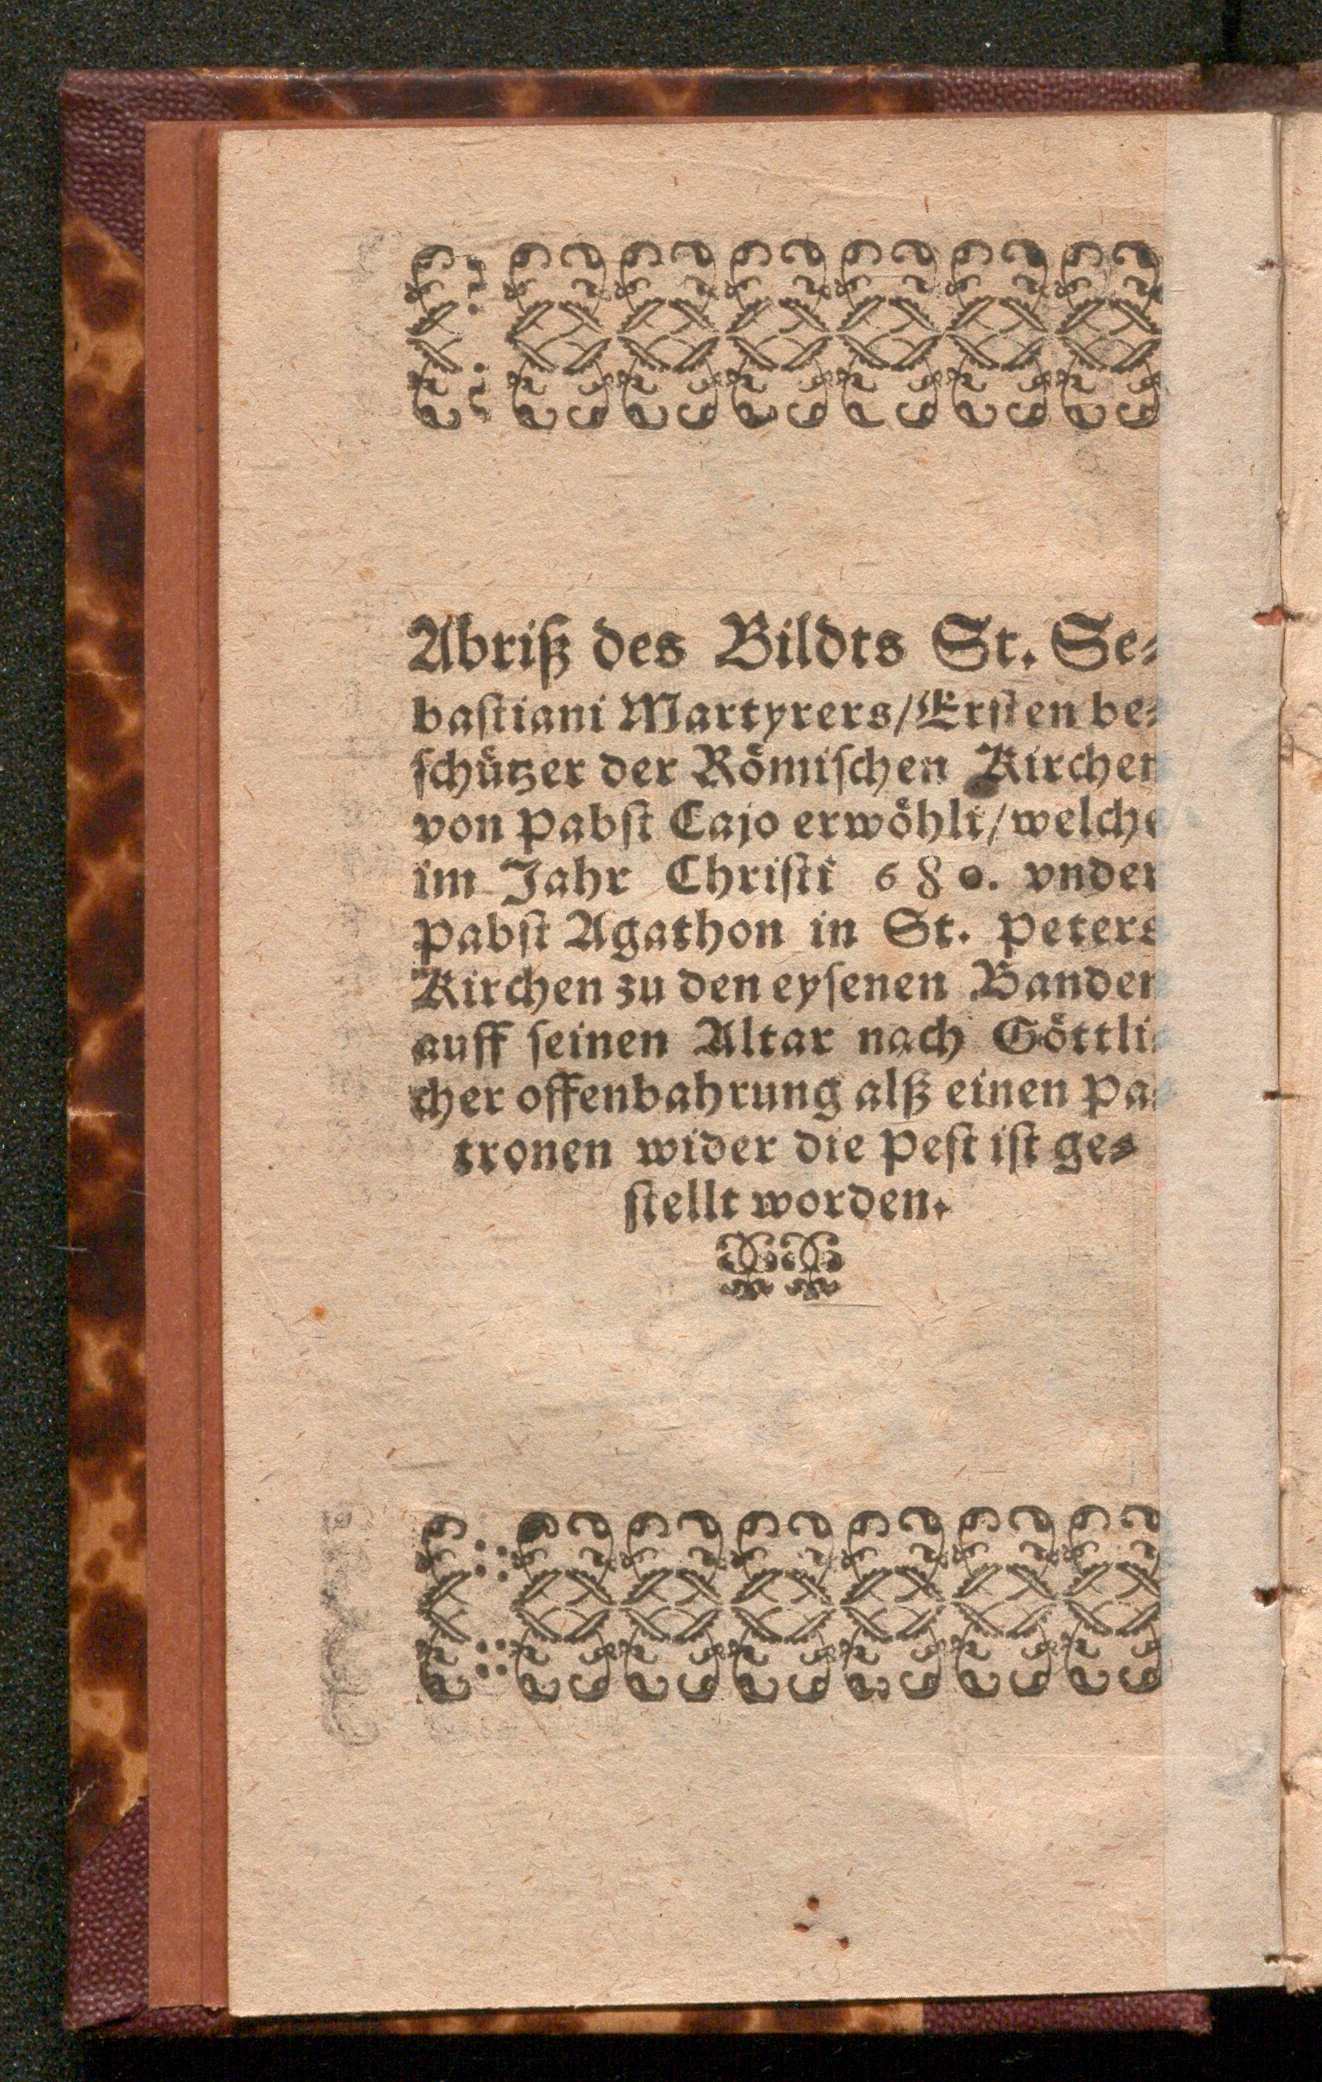 Abriß des Bildts St. Se⸗
baſtiani Martyrers/Erſten be⸗
ſchützer der Römiſchen Kirchen
von Pabſt Cajo erwöhlt/welche
im Jahr Chriſti 680. vnder
Pabſt Agathon in St. Peters
Kirchen zu den eyſenen Banden
auff ſeinen Altar nach Göttli⸗
cher offenbahrung alß einen Pa⸗
tronen wider die Peſt iſt ge⸗
ſtellt worden.